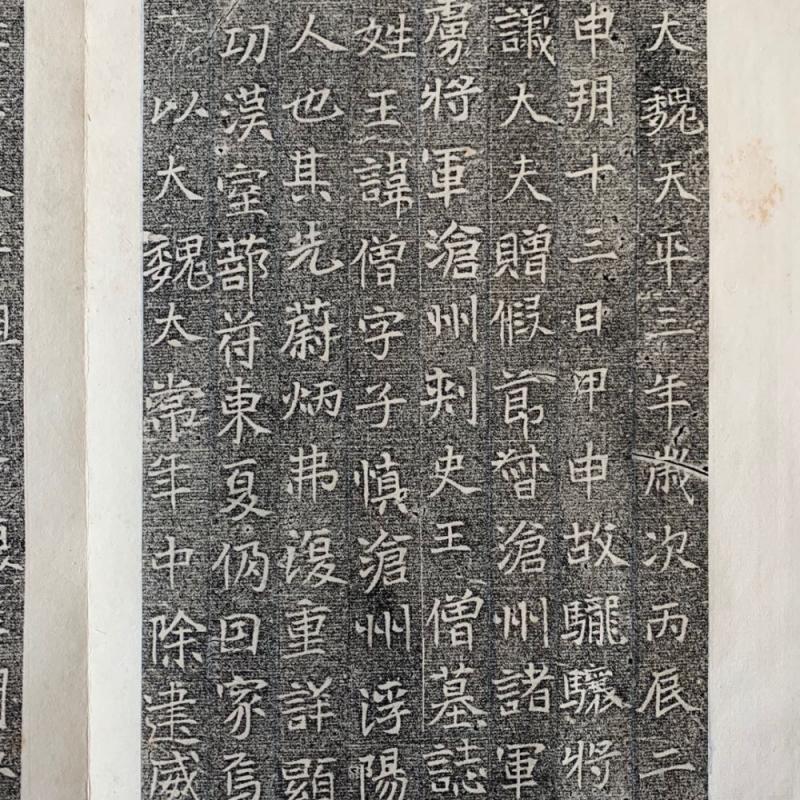 大魏天平三年歲次丙辰二
申朔十三日甲申故龍驤將
議大夫贈假節督滄州諸軍
虜將軍滄州刺史王僧墓誌
姓王諱僧字子慎滄州浮陽
人也其先蔚炳弗復重詳顯
功漢室蔀符東夏仍因家焉
以大魏太常年中除建威